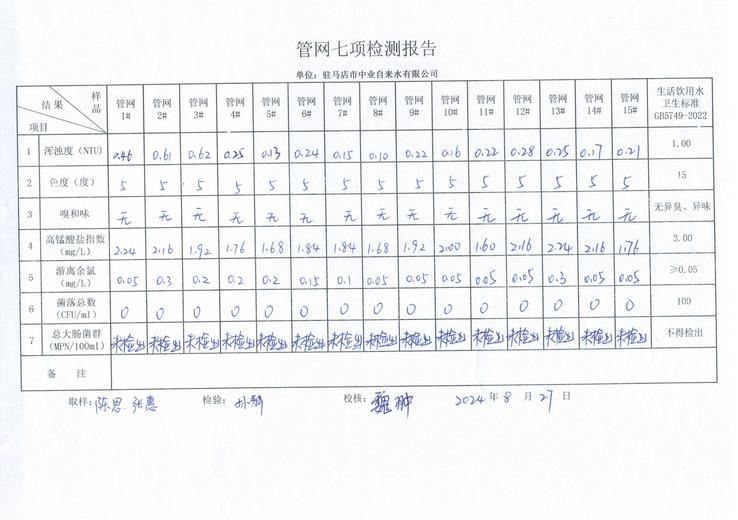 管网七项检测报告
单位：驻马店市中业自来水有限公司
结果 样品 项目 管网1# 管网2# 管网3# 管网4# 管网5# 管网6# 管网7# 管网8# 管网9# 管网10# 管网11# 管网12# 管网13# 管网14# 管网15# 生活饮用水卫生标准GB5749-2022
1 浑浊度（NTU） 0.46 0.61 0.62 0.25 0.13 0.24 0.15 0.10 0.22 0.16 0.22 0.28 0.25 0.17 0.21 1.00
2 色度（度） 5 5 5 5 5 5 5 5 5 5 5 5 5 5 5 15
3 嗅和味 无 无 无 无 无 无 无 无 无 无 无 无 无 无 无 无异臭、异味
4 高锰酸盐指数（mg/L） 2.24 2.16 1.92 1.76 1.68 1.84 1.84 1.68 1.92 2.00 1.60 2.16 2.24 2.16 1.76 3.00
5 游离余氯（mg/L） 0.05 0.3 0.2 0.2 0.2 0.15 0.1 0.05 0.05 0.05 0.05 0.05 0.3 0.05 0.05 ≥0.05
6 菌落总数（CFU/ml） 0 0 0 0 0 0 0 0 0 0 0 0 0 0 0 100
7 总大肠菌群（MPN/100ml） 未检出 未检出 未检出 未检出 未检出 未检出 未检出 未检出 未检出 未检出 未检出 未检出 未检出 未检出 未检出 不得检出
备 注
取样：陈思 张惠 检验： 校核：魏翀 2024 年 8 月 27 日